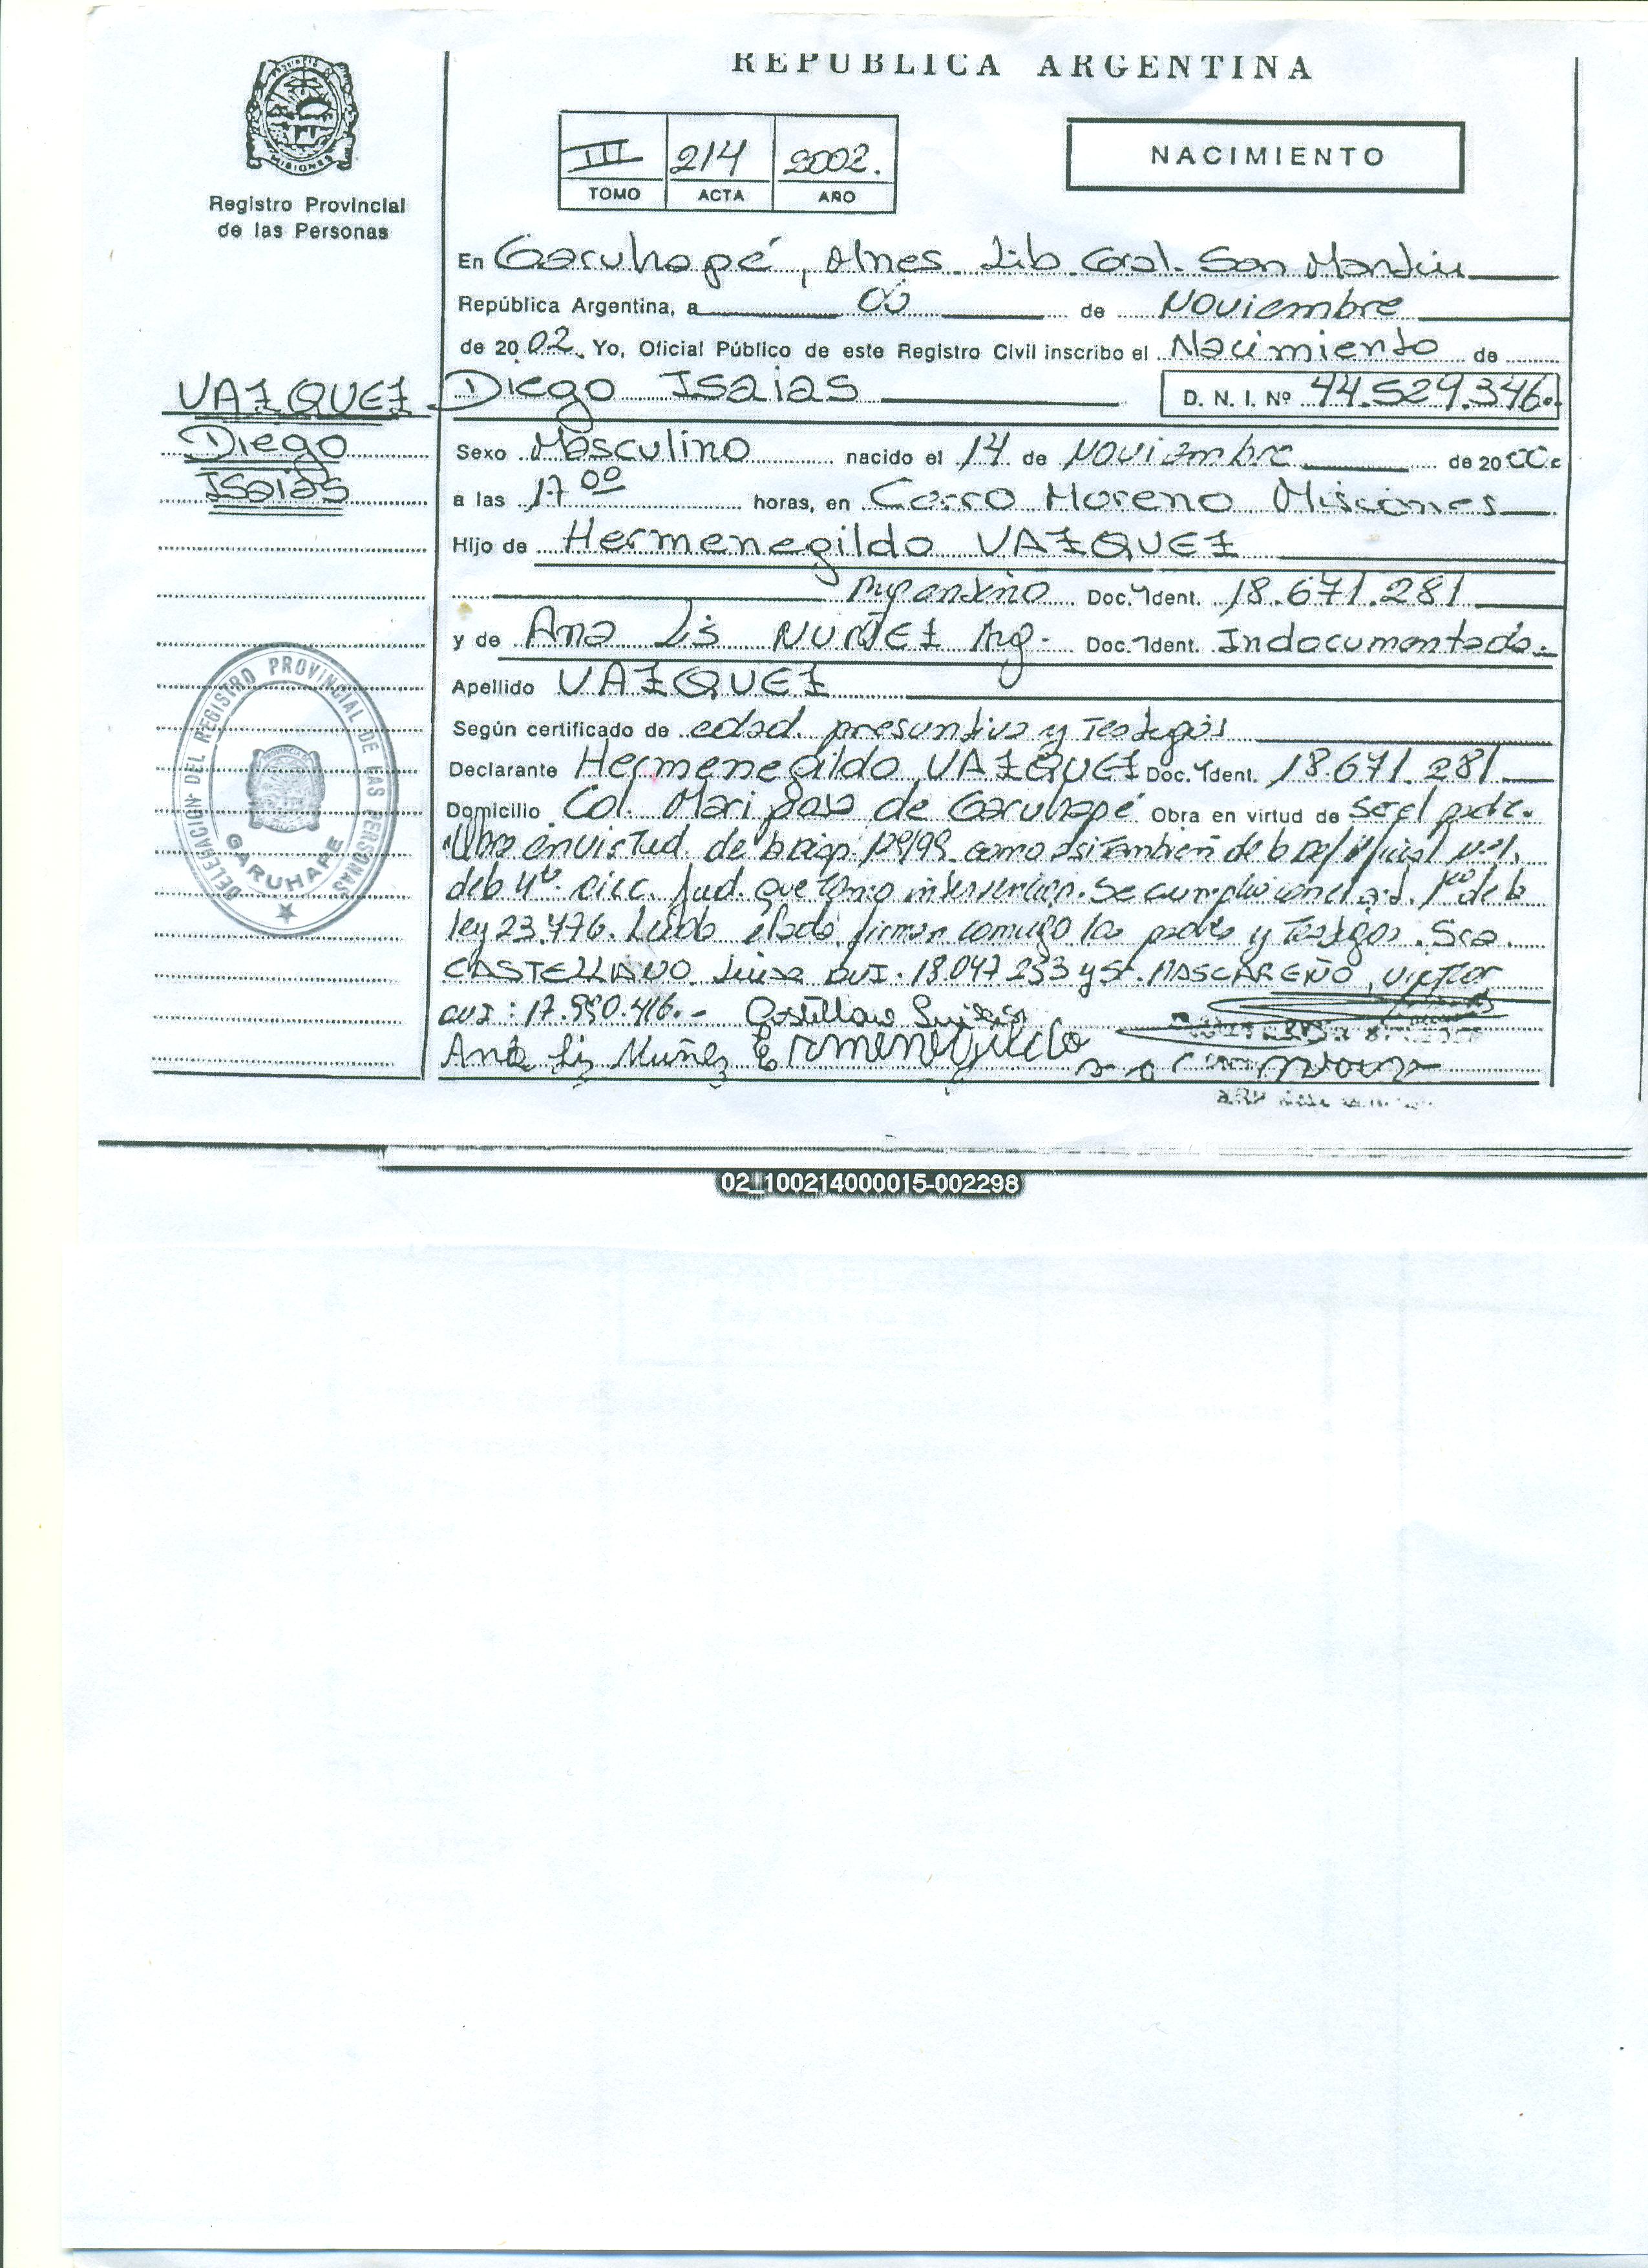 REPUBLICA ARGENTINA
MISIONES
Registro Provincial
de las Personas
III 214 2002.
TOMO ACTA AÑO
NACIMIENTO
En Garuhapé, Mnes. Lib. Gral. San Martin
República Argentina, a de Noviembre
de 20 02. Yo, Oficial Público de este Registro Civil inscribo el Nacimiento de
VAZQUEZ Diego Isaias D. N. I. Nº 44.529.346.
Diego
Isaias
Sexo Masculino nacido el 14 de Noviembre de 20 00
a las 17 00 horas, en Cerro Moreno Misiones
Hijo de Hermenegildo VAZQUEZ
Argentino Doc. Ident. 18.671.281
y de Ana Lis NUÑEZ Arg. Doc. Ident. Indocumentada.
Apellido VAZQUEZ
Según certificado de edad presuntiva y Testigos
Declarante Hermenegildo VAZQUEZ Doc. Ident. 18.671.281
Domicilio Col. Mariposa de Garuhapé Obra en virtud de ser el padre.
Obra en virtud de la 129/99 como asi también de
de la 4ta circ. Jud. que tomó intervención. Se cumplio con el art. 1º de la
ley 23.776. Leida el acta, firman conmigo los padres y Testigos. Sra.
CASTELLANO Luisa DNI. 18.047 233 y Sr. MASCAREÑO, Victor
DNI: 17.990.416.-
Ana Liz Nuñez Ermenegildo
DELEGACION DEL REGISTRO PROVINCIAL DE LAS PERSONAS
GARUHAPE
02_100214000015-002298